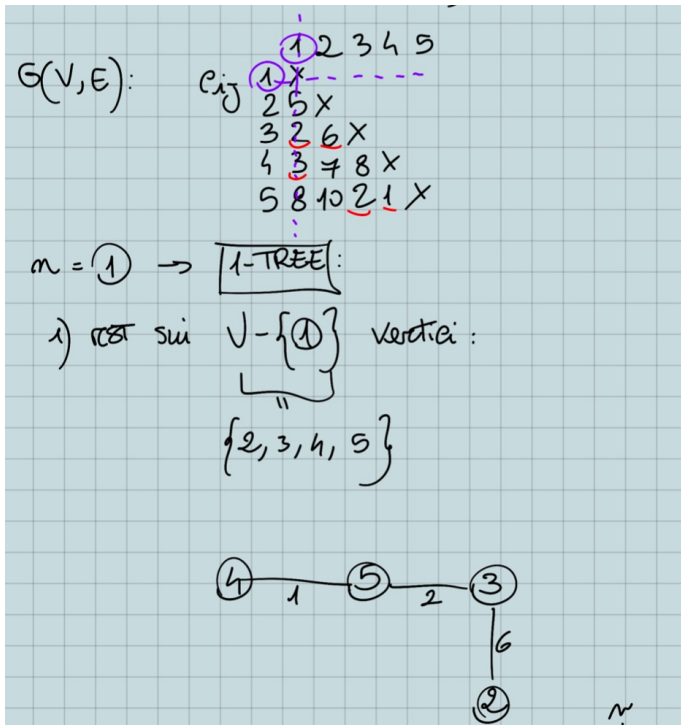 1 2 3 4 5
G(V,E): eij 1 X
2 5 X
3 2 6 X
4 3 7 8 X
5 8 10 2 1 X
n = 1 → 1-TREE:
1) MST sui V-{1} vertici:
"
{2, 3, 4, 5}
4 1 5 2 3
6
2